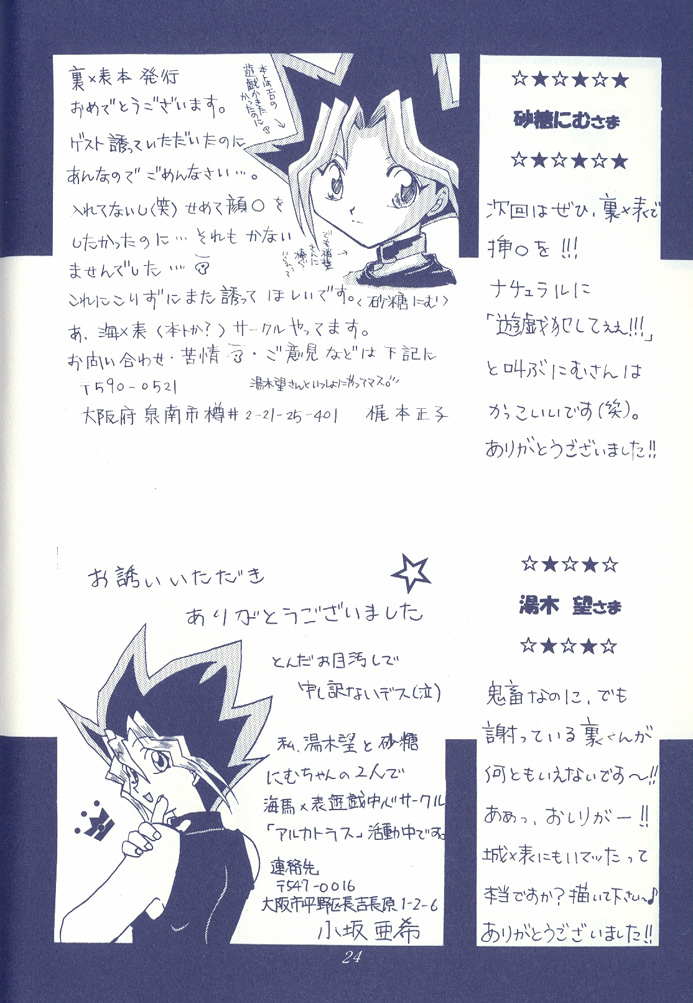 裏×表本 発行
おめでとうございます。
ゲスト誘っていただいたのに
あんなのでごめんなさい…。
入れてないし(笑)せめて顔○を
したかったのに…それもかない
ませんでした…
これにこりずにまた誘ってほしいです。(砂糖にむ)
あ、海×表(本トか?)サークルやってます。
お問い合わせ・苦情・ご意見などは下記に
〒590-0521 湯木望さんといっしょにやってマス。
大阪府泉南市樽井2-21-25-401 梶本正子
本トはエロの
遊戯がかきた
かったのに
☆★☆★☆★
砂糖にむさま
☆★☆★☆★
次回はぜひ、裏×表で
挿○を!!!
ナチュラルに
「遊戯犯してぇぇ!!!」
と叫ぶにむさんは
かっこいいです(笑)。
ありがとうございました!!
お誘いいただき
ありがとうございました
とんだお目汚しで
申し訳ないデス(泣)
私、湯木望と砂糖
にむちゃんの2人で
海馬×表遊戯中心サークル
「アルカトラス」活動中です。
連絡先
〒547-0016
大阪市平野区長吉長原1-2-6
小坂亜希
☆★☆★☆
湯木 望さま
☆★☆★☆
鬼畜なのに、でも
謝っている裏くんが
何ともいえないです〜!!
ああっ、おしりがー!!
城×表にもいてッたって
本当ですか?描いて下さい〜♪
ありがとうございました!!
24